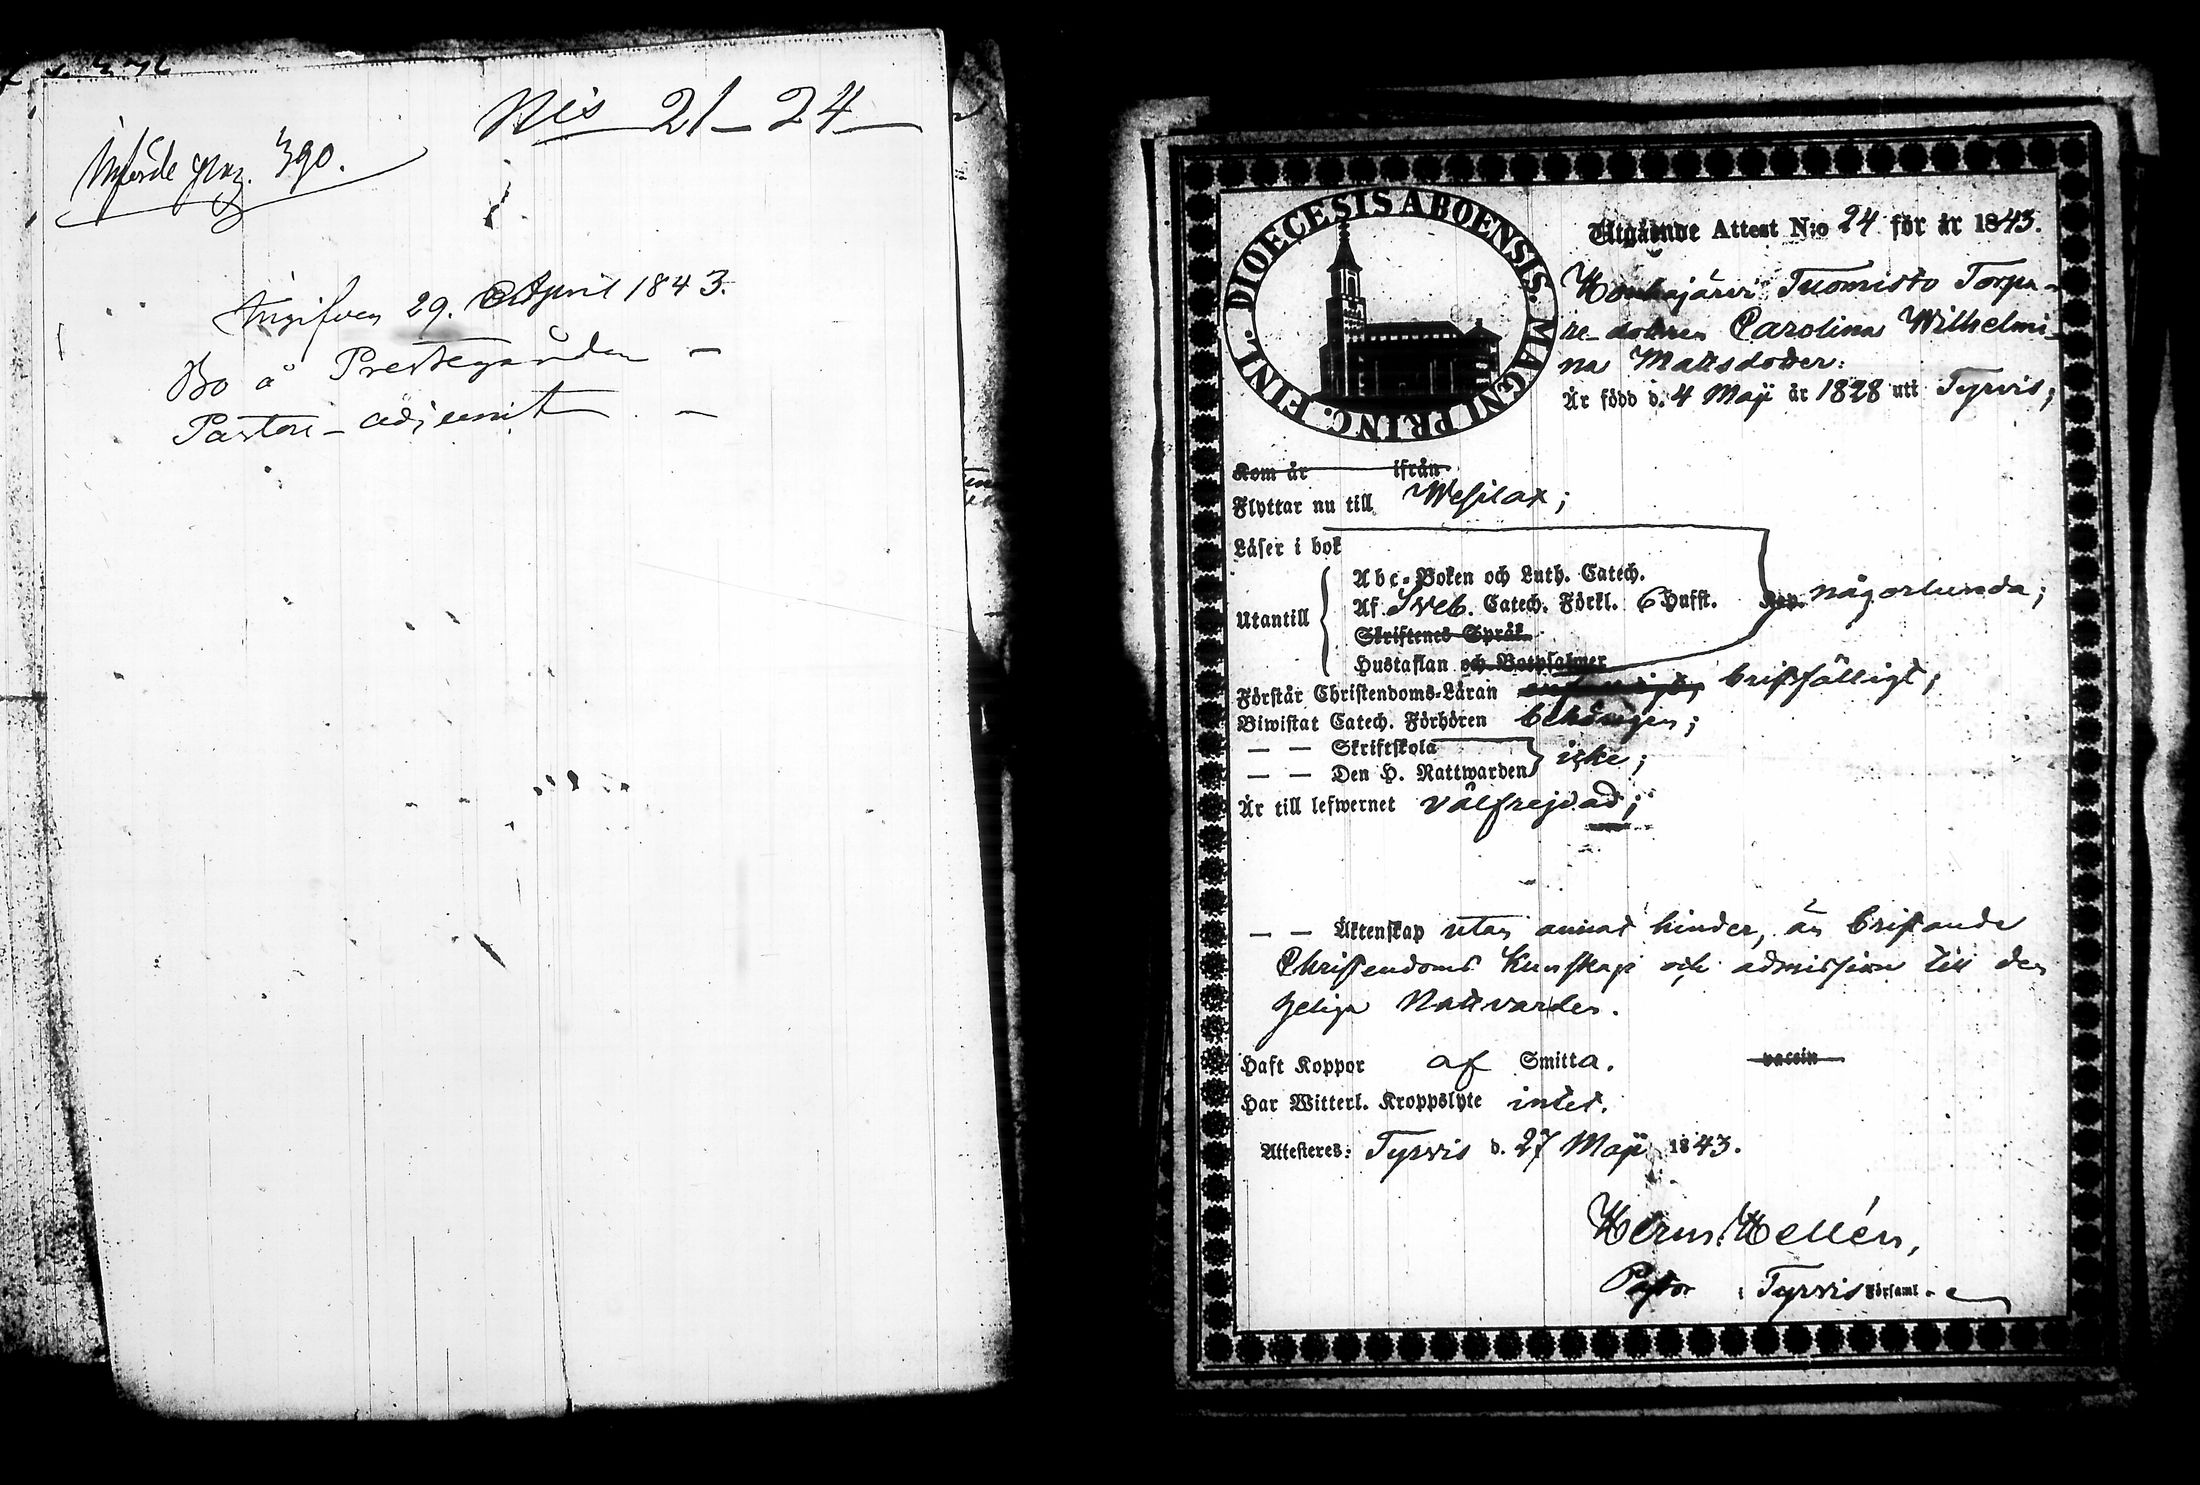 N:is 21–24
Införde pag. 390.
Angifven 29. April 1843.
Bo å Prestegården –
Pastors-adjunct –
DIOECESIS ABOENSIS. MAGNI PRINC. FINL.
Utgående Attest N:o 24 för år 1843.
Houhajärvi Tuomisto Torpa-
re-dottren Carolina Wilhelmi-
na Mattsdotter:
Är född d. 4 Maji år 1828 uti Tyrvis;
Kom år ifrån
Flyttar nu till Wesilax;
Läser i bok
Utantill
Abc-Boken och Luth. Catech.
Af Sveb. Catech. Förkl. 6 Hufst. Kap. någorlunda;
Skriftenes Språk
Hustaflan och Botpsalmer
Förstår Christendoms-Läran bristfälligt;
Biwistat Catech. Förhören behörigen;
— — Skriftskola
— — Den H. Nattwarden icke;
Är till lefwernet välfrejdad;
— — Äktenskap utan annat hinder, än bristande
Christendoms kunskap och admission till den
heliga Nattvarden.
Haft Koppor af Smitta. vaccin
Har Witterl. Kroppslyte intet.
Attesteras: Tyrvis d. 27 Maji 1843.
Herm. Hellén,
Pastor i Tyrvis Församl.